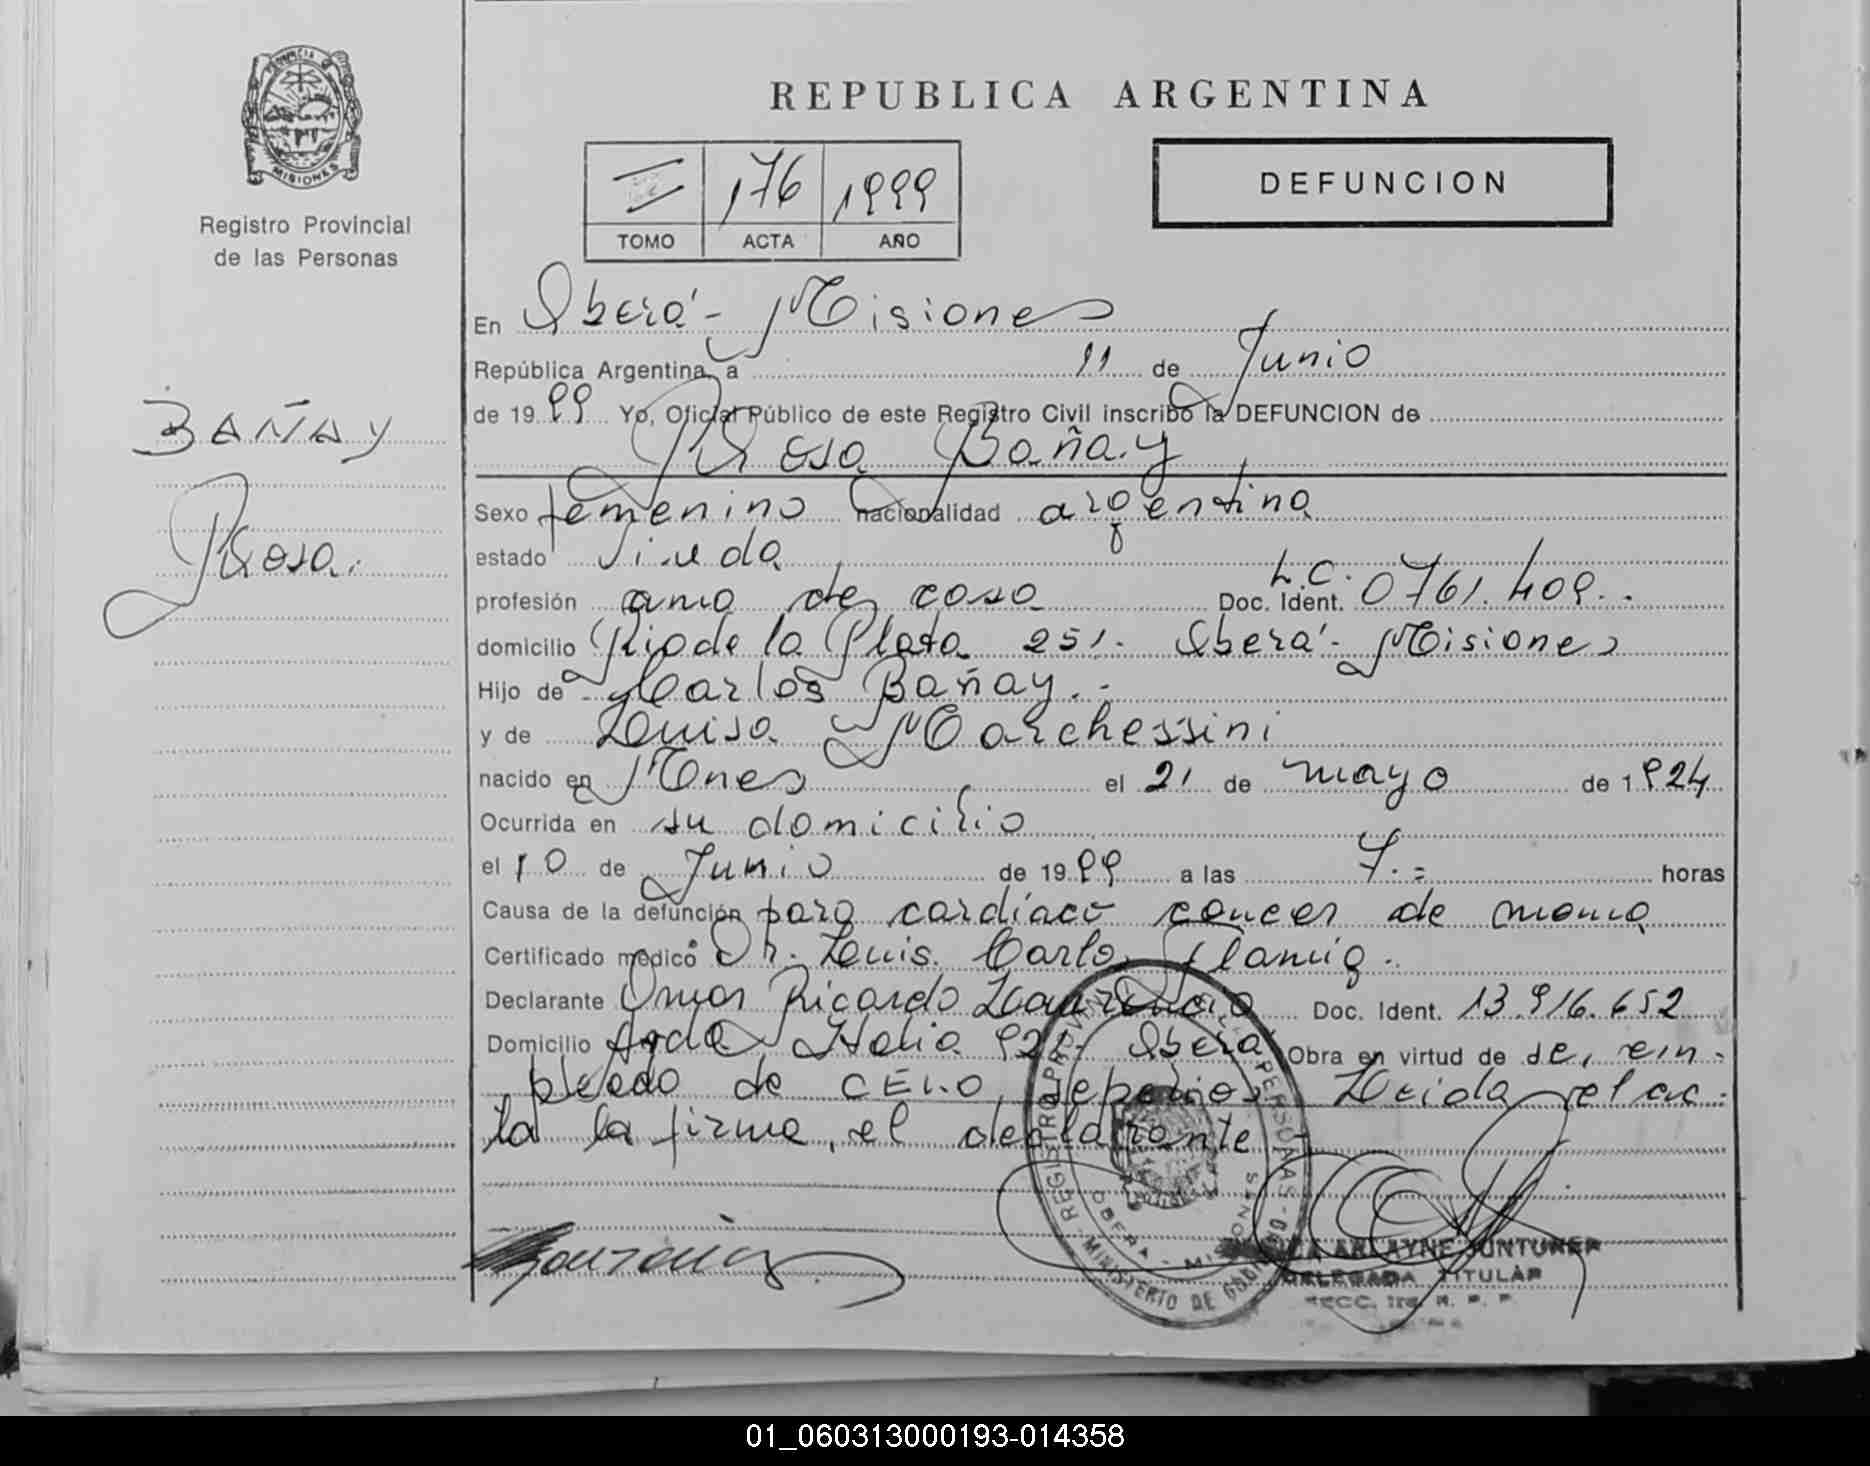 PROVINCIA DE
MISIONES
Registro Provincial
de las Personas
BAÑAY
Rosa.
REPUBLICA ARGENTINA
176 1999
TOMO ACTA AÑO
DEFUNCION
En Oberá - Misiones
República Argentina, a 11 de Junio
de 1999 Yo, Oficial Público de este Registro Civil inscribo la DEFUNCION de
Rosa Bañay
Sexo femenino nacionalidad argentina
estado Viuda
profesión ama de casa Doc. Ident. L.C. 0761.409.
domicilio Rio de la Plata 251. Oberá - Misiones
Hijo de Carlos Bañay.
y de Luisa Marchessini
nacido en Mnes el 21 de mayo de 1924
Ocurrida en su domicilio
el 10 de Junio de 1999 a las 7.= horas
Causa de la defunción paro cardíaco cancer de mama
Certificado médico Dr. Luis Carlos Flamig.
Declarante Omar Ricardo Lourencio Doc. Ident. 13.916.652
Domicilio Avda Italia 921 Oberá Obra en virtud de de, ser em-
pleado de CELO sepelios Leida el ac-
ta la firma, el declarante
REGISTRO PROVINCIAL DE LAS PERSONAS
MINISTERIO DE GOBIERNO
OBERA - MISIONES
ARLAYNE JUNTUNER
DELEGADA TITULAR
SECC. 1ra. R. P. P.
01_060313000193-014358